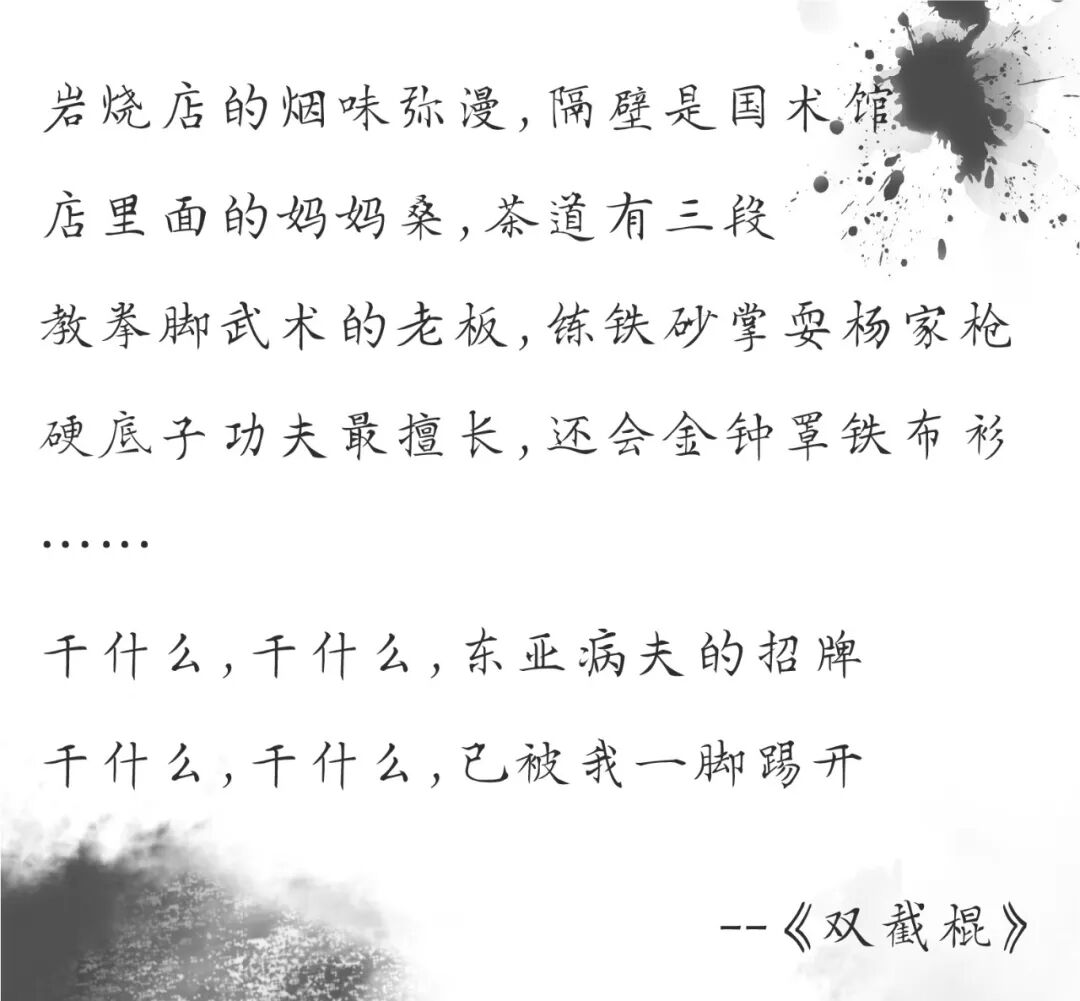 岩烧店的烟味弥漫,隔壁是国术馆
店里面的妈妈桑,茶道有三段
教拳脚武术的老板,练铁砂掌耍杨家枪
硬底子功夫最擅长,还会金钟罩铁布衫
……
干什么,干什么,东亚病夫的招牌
干什么,干什么,已被我一脚踢开
--《双截棍》